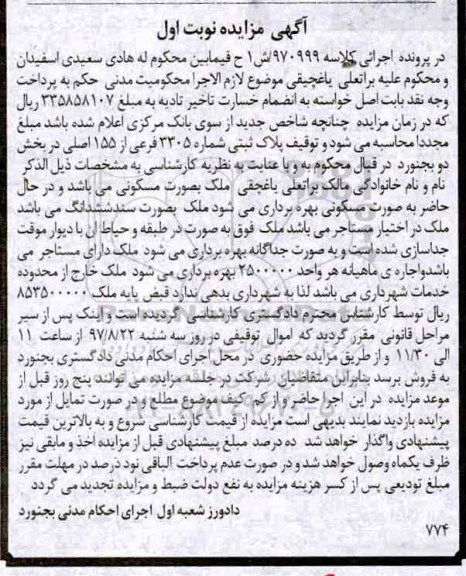 آگهی مزایده نوبت اول
در پرونده اجرائی کلاسه ۹۷۰۹۹۹/ش۱ ح فیمابین محکوم له هادی سعیدی اسفیدان
و محکوم علیه براتعلی یاغچیقی موضوع لازم الاجرا محکومیت مدنی حکم به پرداخت
وجه نقد بابت اصل خواسته به انضمام خسارت تاخیر تادیه به مبلغ ۳۳۵۸۵۸۱۰۷ ریال
که در زمان مزایده چنانچه شاخص جدید از سوی بانک مرکزی اعلام شده باشد مبلغ
مجددا محاسبه می شود و توقیف پلاک ثبتی شماره ۳۳۰۵ فرعی از ۱۵۵ اصلی در بخش
دو بجنورد در قبال محکوم به و با عنایت به نظریه کارشناسی به مشخصات ذیل الذکر
نام و نام خانوادگی مالک براتعلی یاغچقی ملک بصورت مسکونی می باشد و در حال
حاضر به صورت مسکونی بهره برداری می شود ملک بصورت سندششدانگ می باشد
ملک در اختیار مستاجر می باشد ملک فوق به صورت در طبقه و حیاط ان با دیوار موقت
جداسازی شده است و به صورت جداگانه بهره برداری می شود ملک دارای مستاجر می
باشدواجاره ی ماهیانه هر واحد ۲۵۰۰۰۰۰ بهره برداری می شود ملک خارج از محدوده
خدمات شهرداری می باشد لذا به شهرداری بدهی ندارد قبض پایه ملک ۸۵۳۵۰۰۰۰۰
ریال توسط کارشناس محترم دادگستری کارشناسی گردیده است و اینک پس از سیر
مراحل قانونی مقرر گردید که اموال توقیفی در روز سه شنبه ۹۷/۸/۲۲ از ساعت ۱۱
الی ۱۱/۳۰ و از طریق مزایده حضوری در محل اجرای احکام مدنی دادگستری بجنورد
به فروش برسد بنابراین متقاضیان شرکت در جلسه مزایده می توانند پنج روز قبل از
موعد مزایده در این اجرا حاضر و از کم و کیف موضوع مطلع و در صورت تمایل از مورد
مزایده بازدید نمایند بدیهی است مزایده از قیمت کارشناسی شروع و به بالاترین قیمت
پیشنهادی واگذار خواهد شد ده درصد مبلغ پیشنهادی قبل از مزایده اخذ و مابقی نیز
ظرف یکماه وصول خواهد شد و در صورت عدم پرداخت الباقی نود درصد در مهلت مقرر
مبلغ تودیعی پس از کسر هزینه مزایده به نفع دولت ضبط و مزایده تجدید می گردد
دادورز شعبه اول اجرای احکام مدنی بجنورد
۷۷۴